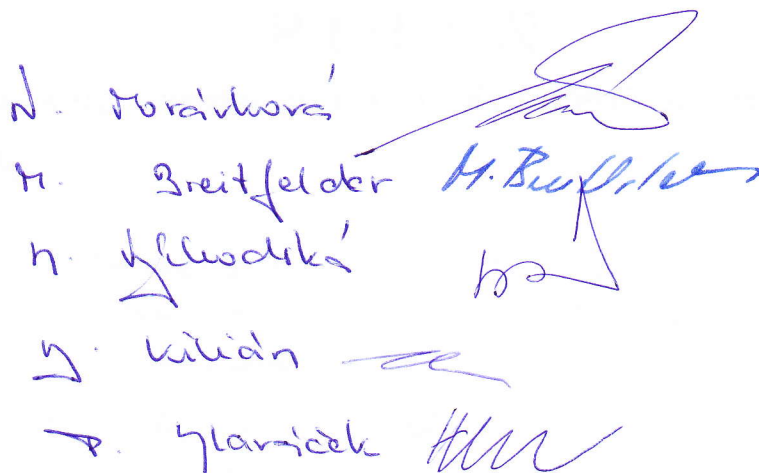 N. Morávková
M. Breitfelder M. Breitfelder
M. Východská
J. Kilián
P. Hlaváček